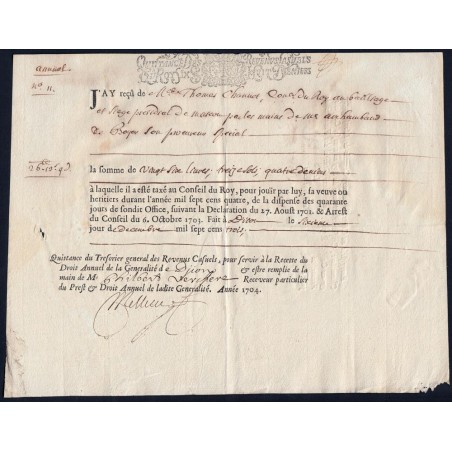 annuel
J'AY reçu de Me Thomas Chauvot, Conr du Roy au bailliage
et Siege presidial de mascon par les mains de
De son procureur special
26lt 13s 4d
la somme de vingt six livres, treize sols, quatre deniers
à laquelle il a esté taxé au Conseil du Roy, pour jouir par luy, sa veuve ou
heritiers durant l'année mil sept cens quatre, de la dispense des quarante
jours de sondit Office, suivant la Declaration du 27. Aoust 1701. & Arrest
du Conseil du 6. Octobre 1703. Fait à Dijon le
jour de decembre mil sept cens trois.
Quittance du Tresorier general des Revenus Casuels, pour servir à la Recette du
Droit Annuel de la Generalité de Dijon & estre remplie de la
main de M. Philbert Receveur particulier
du Prest & Droit Annuel de ladite Generalité. Année 1704.